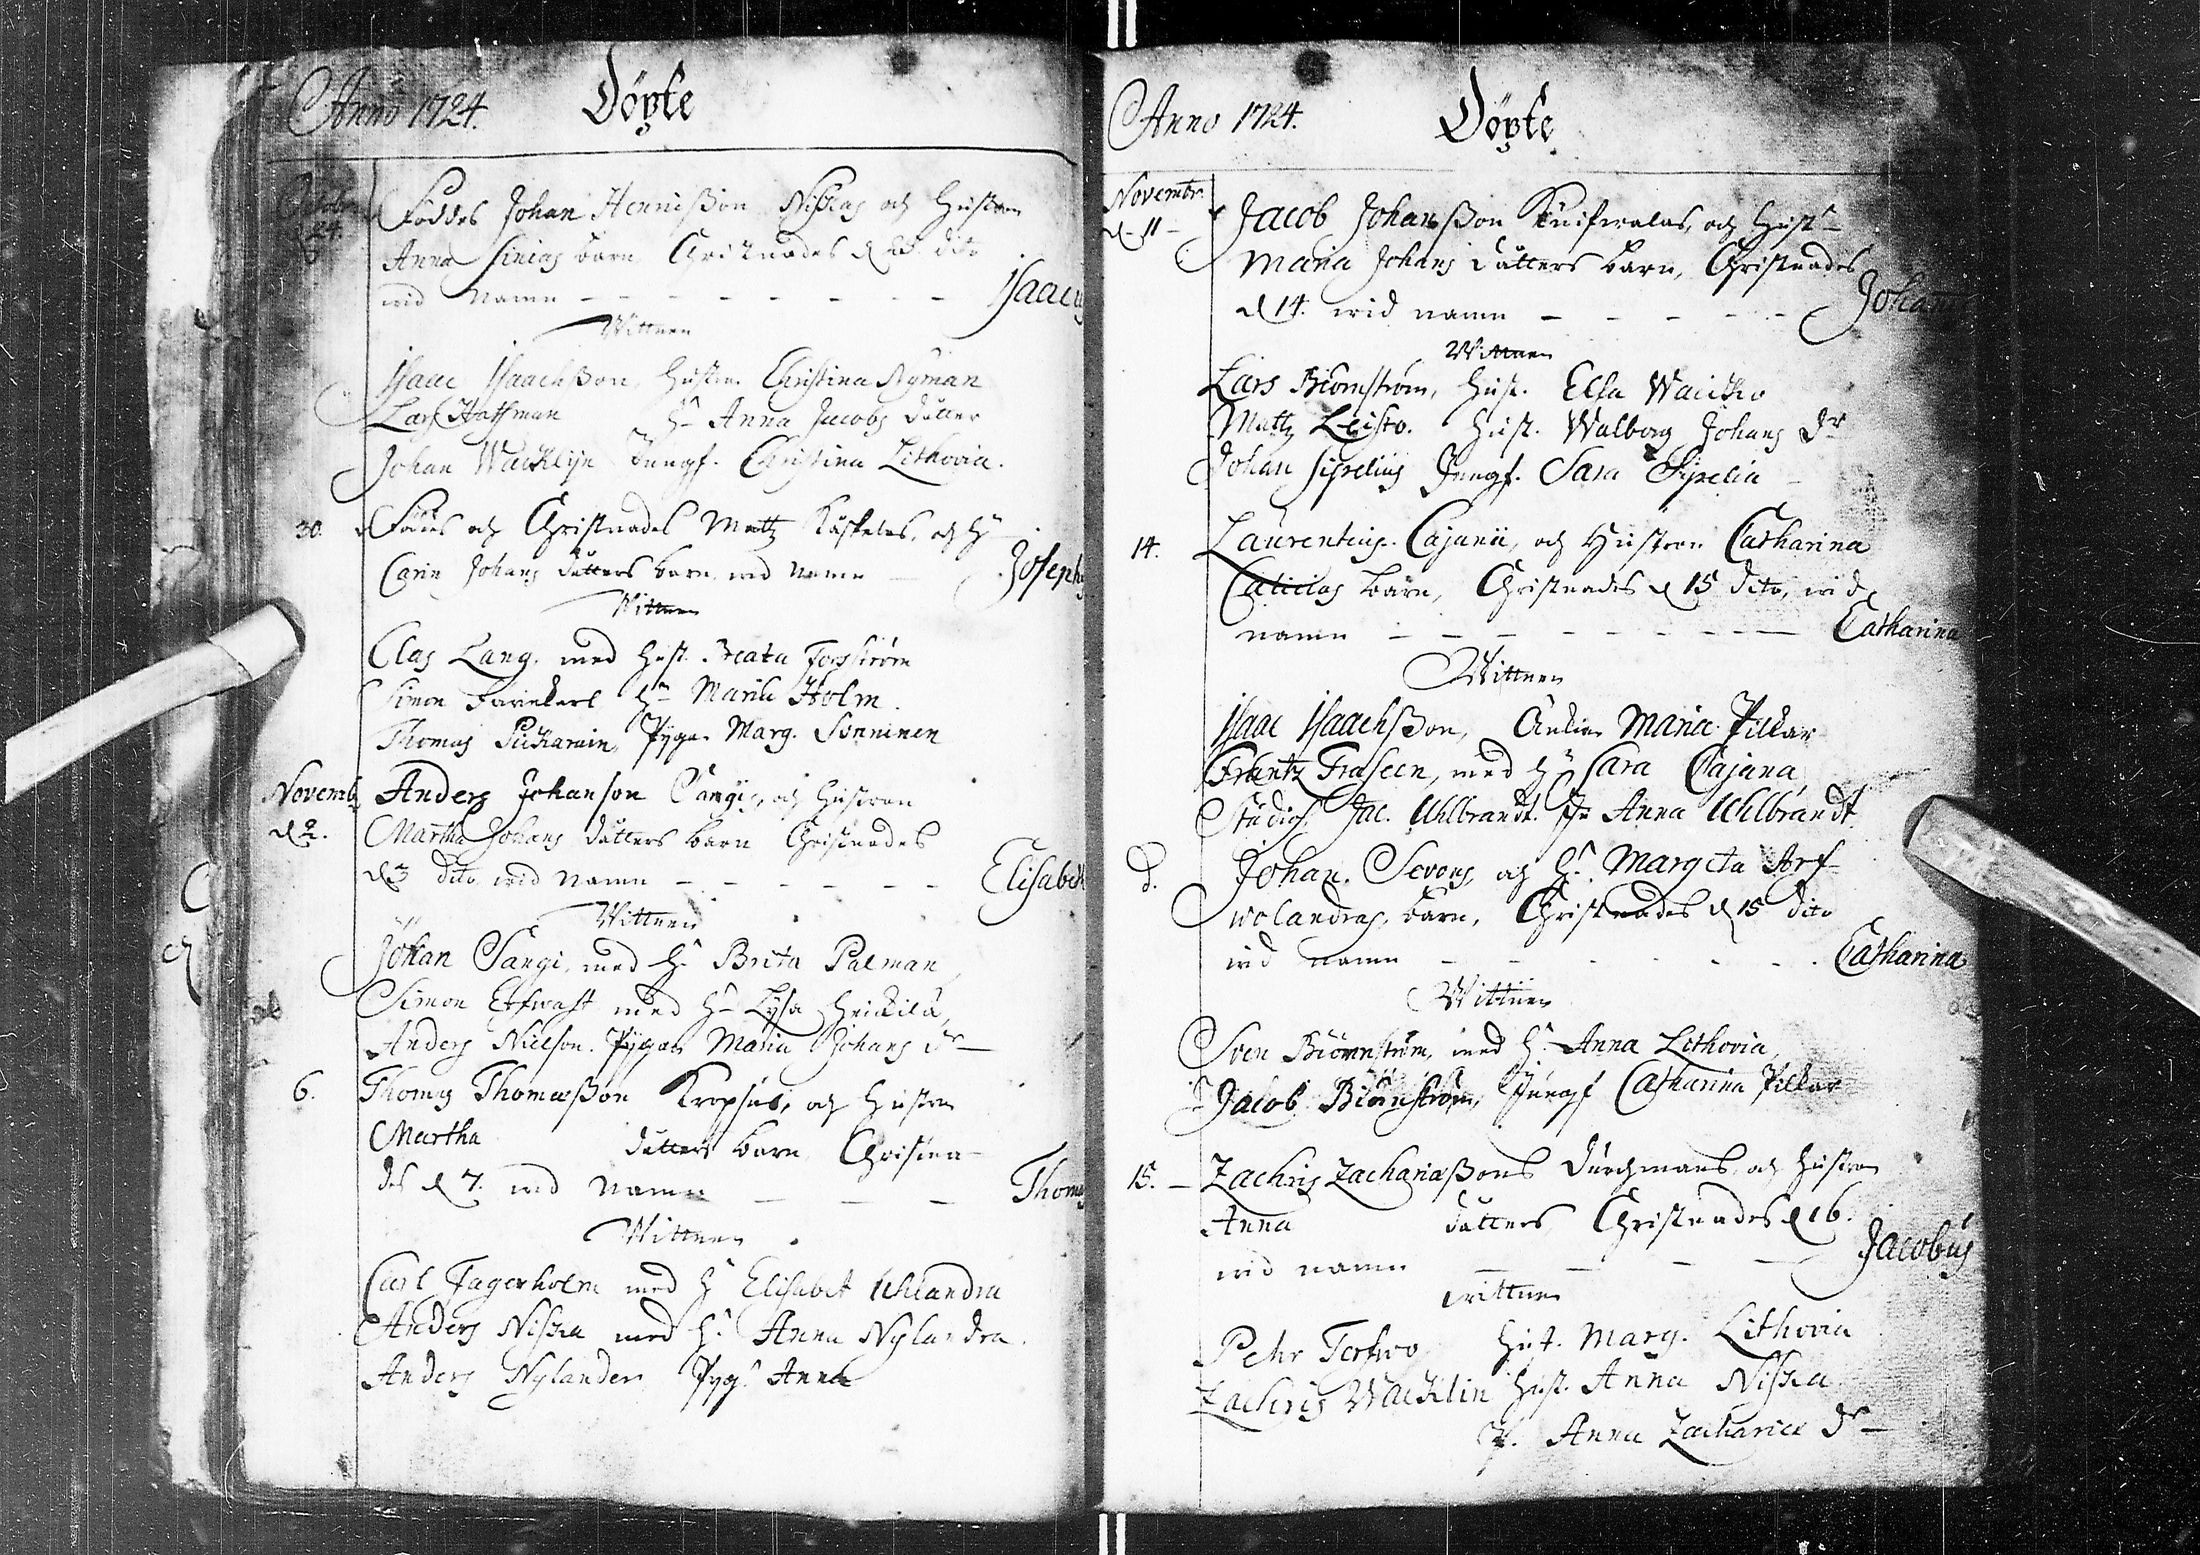 Anno 1724. Döpte
Octobr
d 24. Föddes Johan Hennißon Niskas och Hustrun
Anna Sinias barn Christnades d 25. dito
wid Namn - - - - - - - Isaacus
Wittnen
Isaac Isaachßon, Hustru Christina Nyman
Lars Hoffman H. Anna Jacobs dåtter
Johan Wacklijn Jungf. Christina Lithovia.
30. Föddes och Christnades Mattz Käskelas, och H.
Carin Johans dåtters barn wid Namn - Josephus
Wittnen
Clas Lang, med Hust. Beata Forsström
Simon H. Maria Holm.
Thomas Pigan Marg. Sonninen
Novemb.
d 2. Anders Johanson Sangis, och Hustrun
Martha Johans dåtters barn Christnades
d 3 dito wid Namn - - - - - - Elisabeth
Wittnen
Johan Sangi, med H. Brita Palman
Simon med H. Lysa Heickilä,
Anders Nielson. Pigan Maria Johans dr
6. Thomas Thomæßon Kropsus, och Hustrun
Martha dåtters barn Christna-
des d 7. wid Namn - - - Thomas
Wittnen
Carl Fagerholm med H. Elisabet Uhlandra
Anders Niska med H. Anna Nylandra.
Anders Nylander Pyg. Anna
Anno 1724. Döpte
Novembr.
d 11 - Jacob Johanßon Kuifwalas, och Hust.
Maria Johans dåtters barn, Christnades
d 14. wid namn - - - - - Johannes
Wittnen
Lars Biörnström, Hust. Elsa Wacklin
Mattz Leisto. Hust. Walborg Johans dr
Johan Sipelius Jungf. Sara Sipelia
14. Laurentius Cajanii, och Hustrun Catharina
barn, Christnades d 15 dito, wid
namn - - - - - - - - Catharina
Wittnen
Isaac Isaachßon, Änkian Maria Pilkar
Frantz Fraseen, med H. Sara Cajana
Studios. Jac. Uhlbrandt. Jfr Anna Uhlbrandt
d. Johan Sevons, och H. Margeta Arf-
wolandras, barn, Christnades d 15 dito
wid namn - - - - - - - Catharina
Wittnen
Sven Biörnström, med H. Anna Lithovia,
Jacob Biörnström, Jungf Catharina Pilkar
15. - Zachris Zachariæßons Durchmans och Hustrun
Anna dåtters Christnades d 16.
wid namn - - - - - Jacobus
wittnen
Pehr Torfwo Hust. Marg. Lithovia
Zachris Wacklin Hust. Anna Niska
P. Anna Zachariæ dr